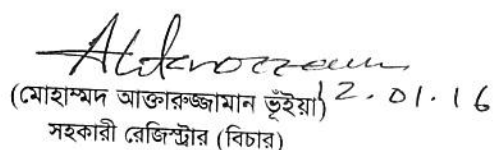 Aktaruzzaman
(মোহাম্মদ আক্তারুজ্জামান ভূঁইয়া) 12.01.16
সহকারী রেজিস্ট্রার (বিচার)